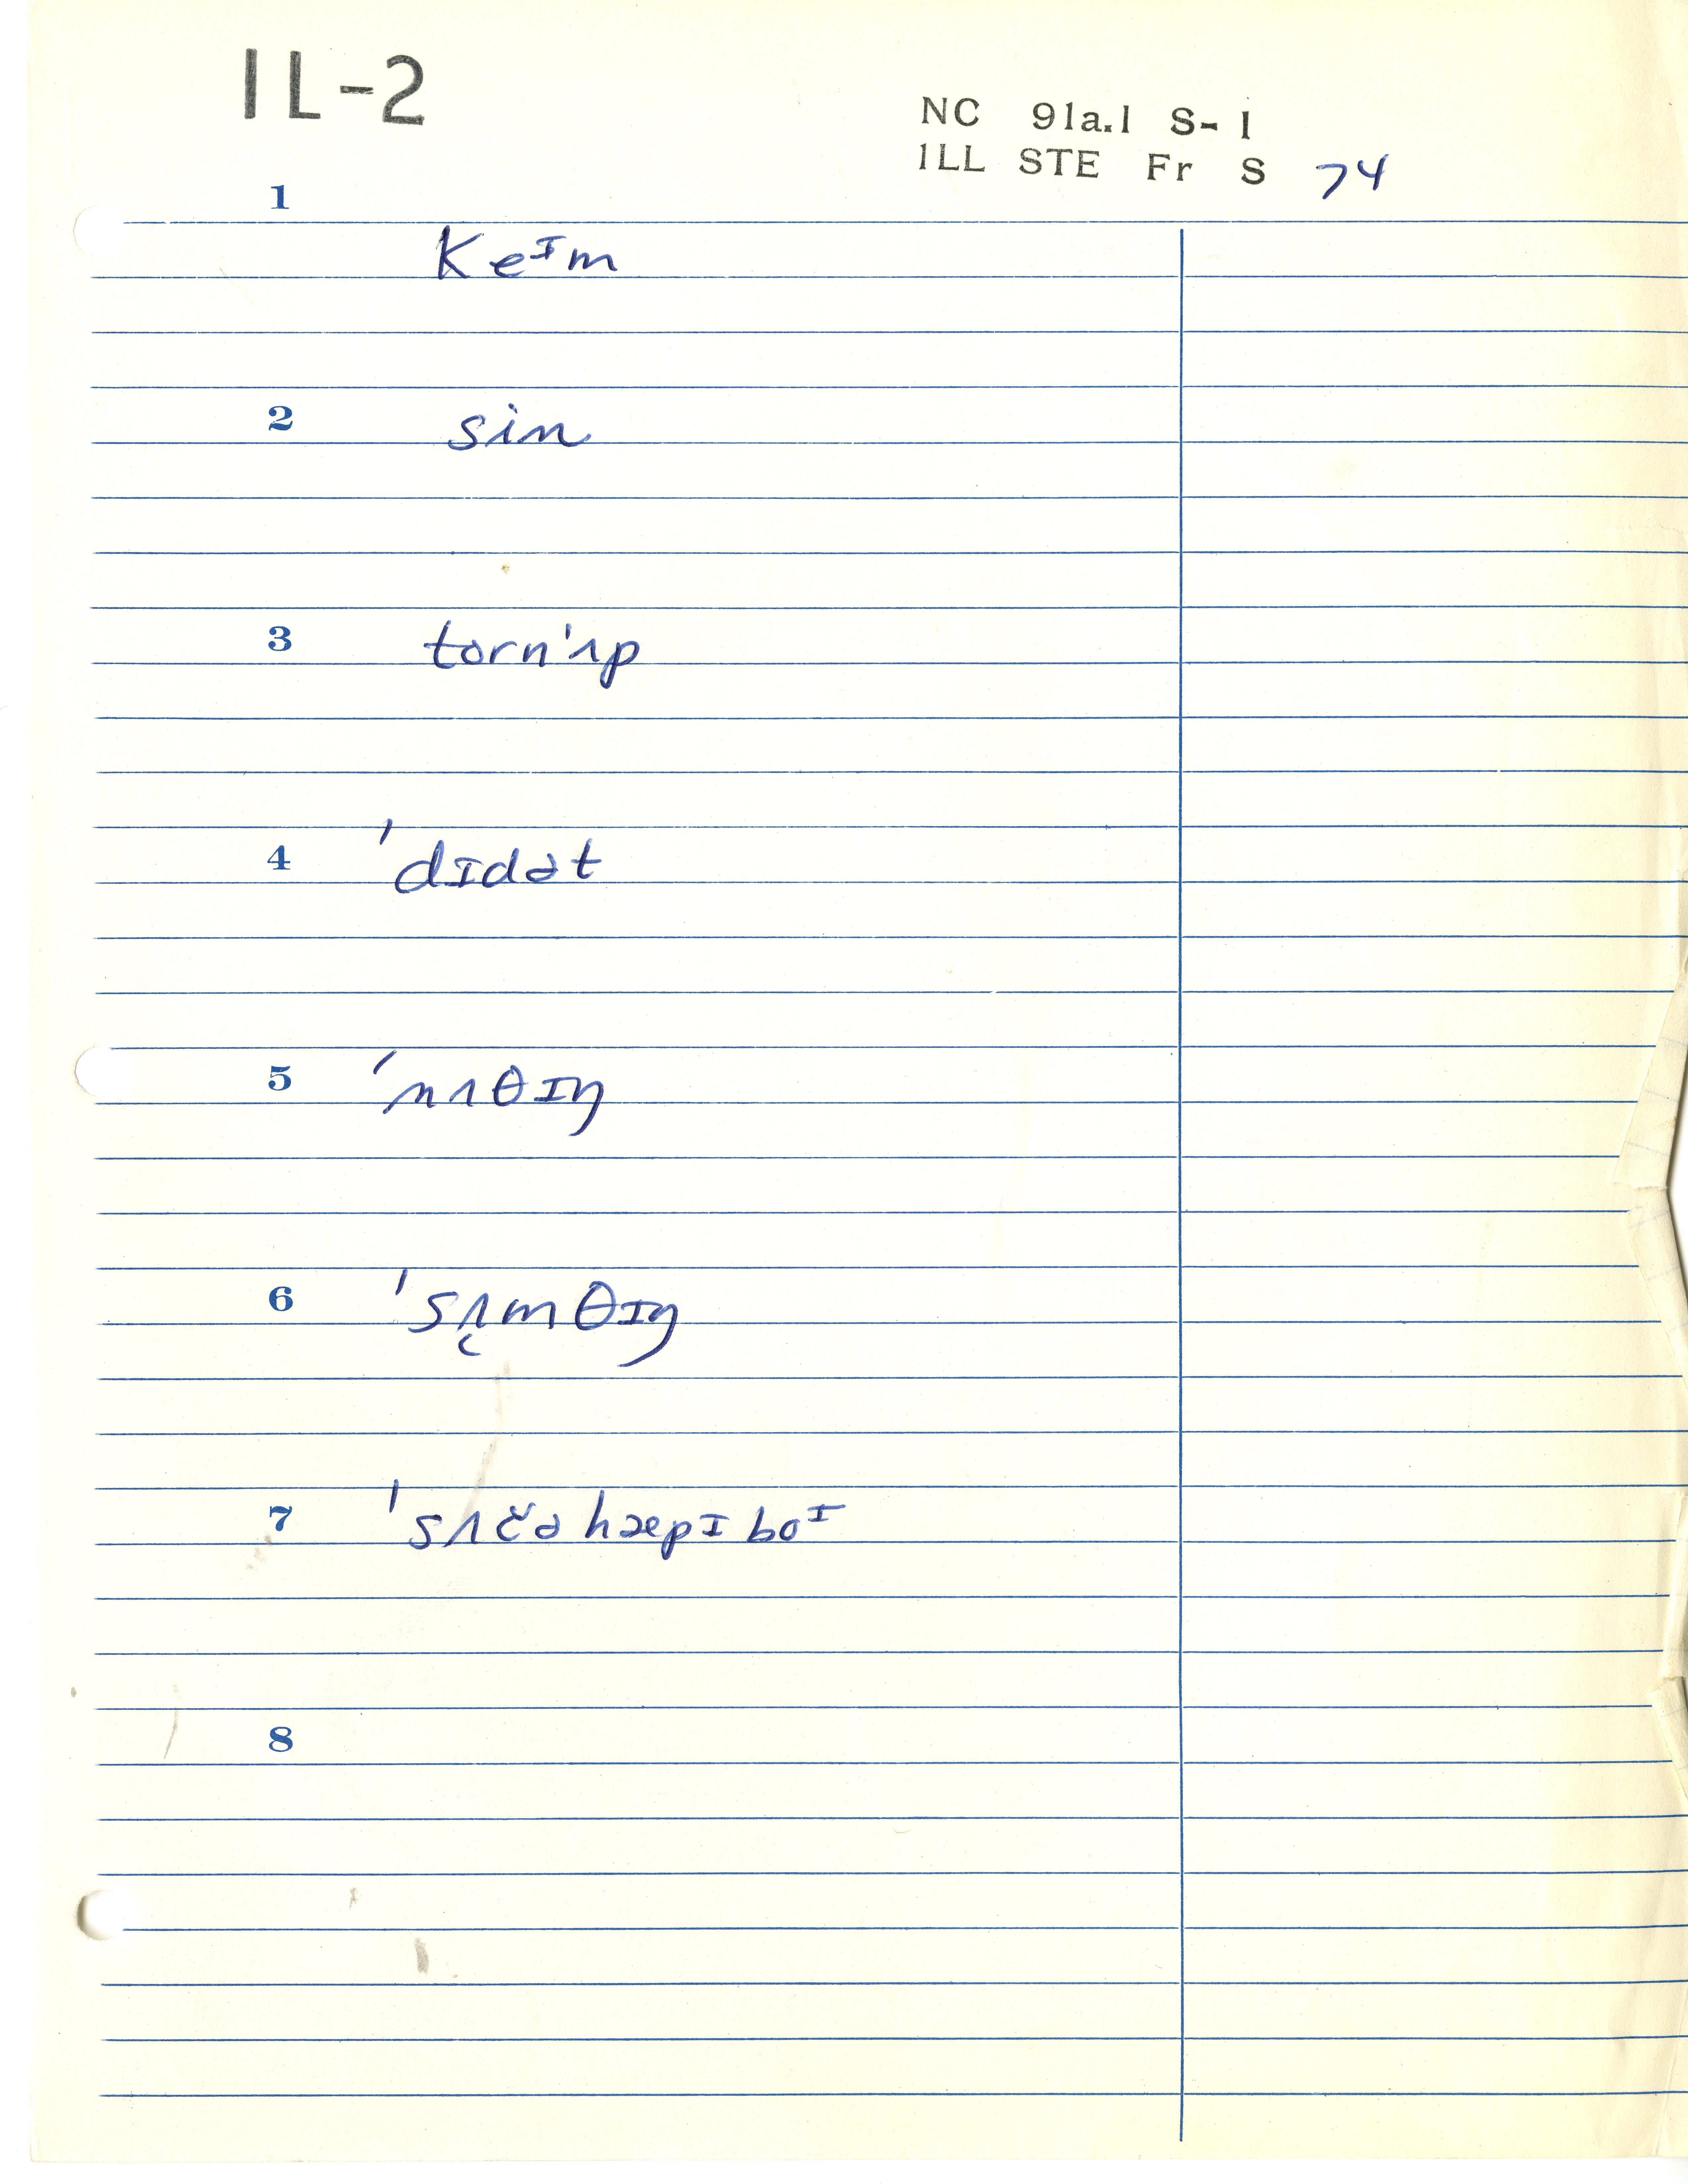 IL-2
NC 91a.1 S-1
ILL STE Fr S 74
1
keᴵm
2
sin
3
torn'ʌp
4
'dɪdət
5
'nʌθɪŋ
6
'sʌ̜mθɪŋ
7
'sʌčə hæpɪ boᴵ
8